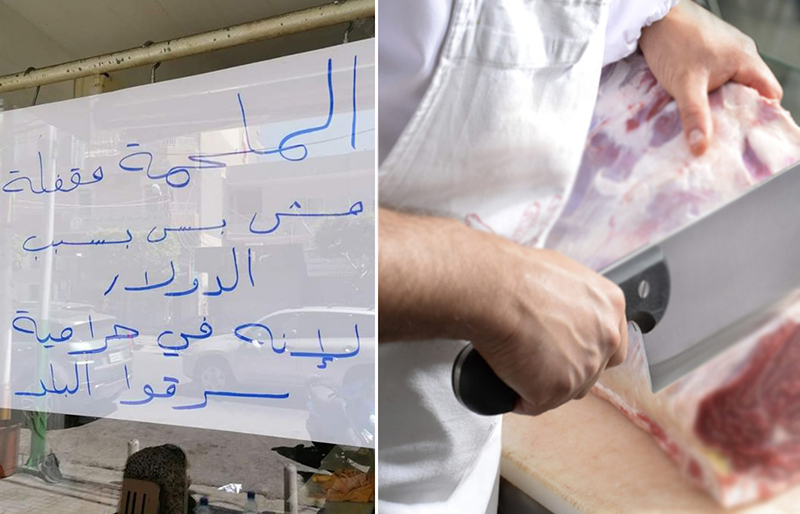 الملحمة مقفلة
مش بس بسبب
الدولار
لإنه في حرامية
سرقوا البلد